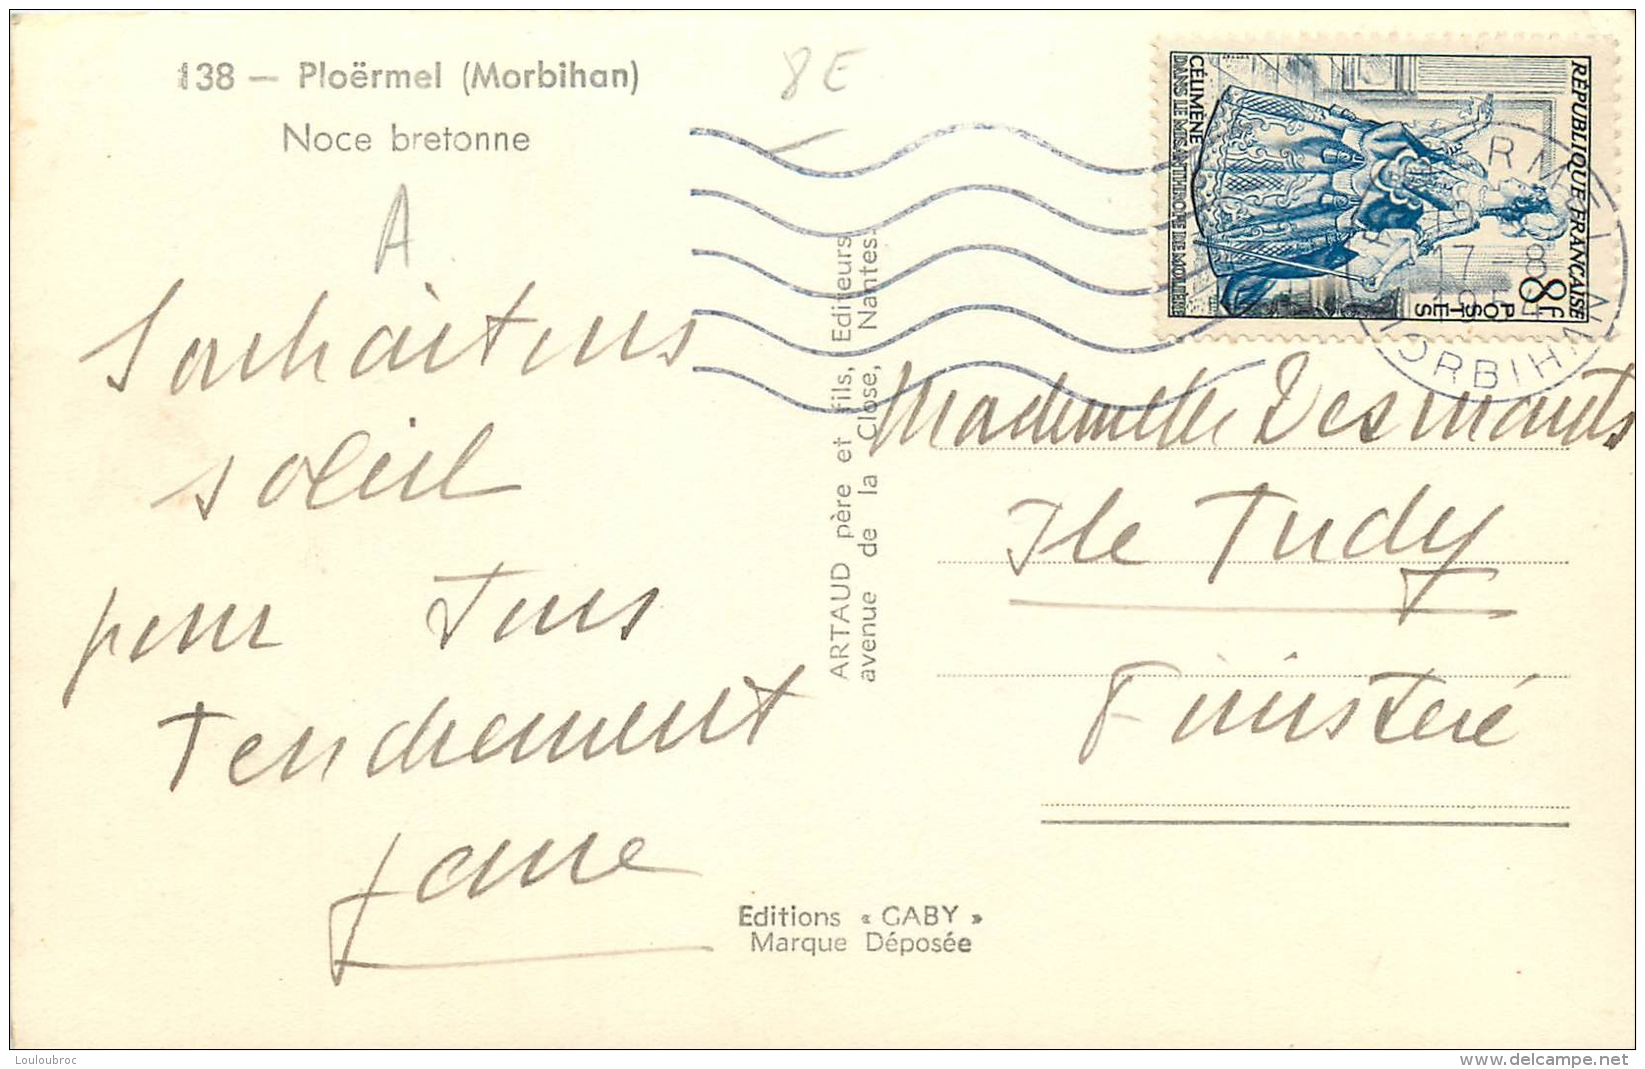 138 — Ploërmel (Morbihan)
Noce bretonne
8E
A
Souhaitons
soleil
pour tous
Tendrement
Jane
ARTAUD père et fils, Editeurs
avenue de la Close, Nantes.
Editions « GABY »
Marque Déposée
RÉPUBLIQUE FRANÇAISE
8F.
POSTES
CÉLIMÈNE
DANS LE MISANTHROPE DE MOLIÈRE
17 - 8
MORBIHAN
Mademoiselle Desmants
Ile Tudy
Finisteré
Louloubroc
www.delcampe.net